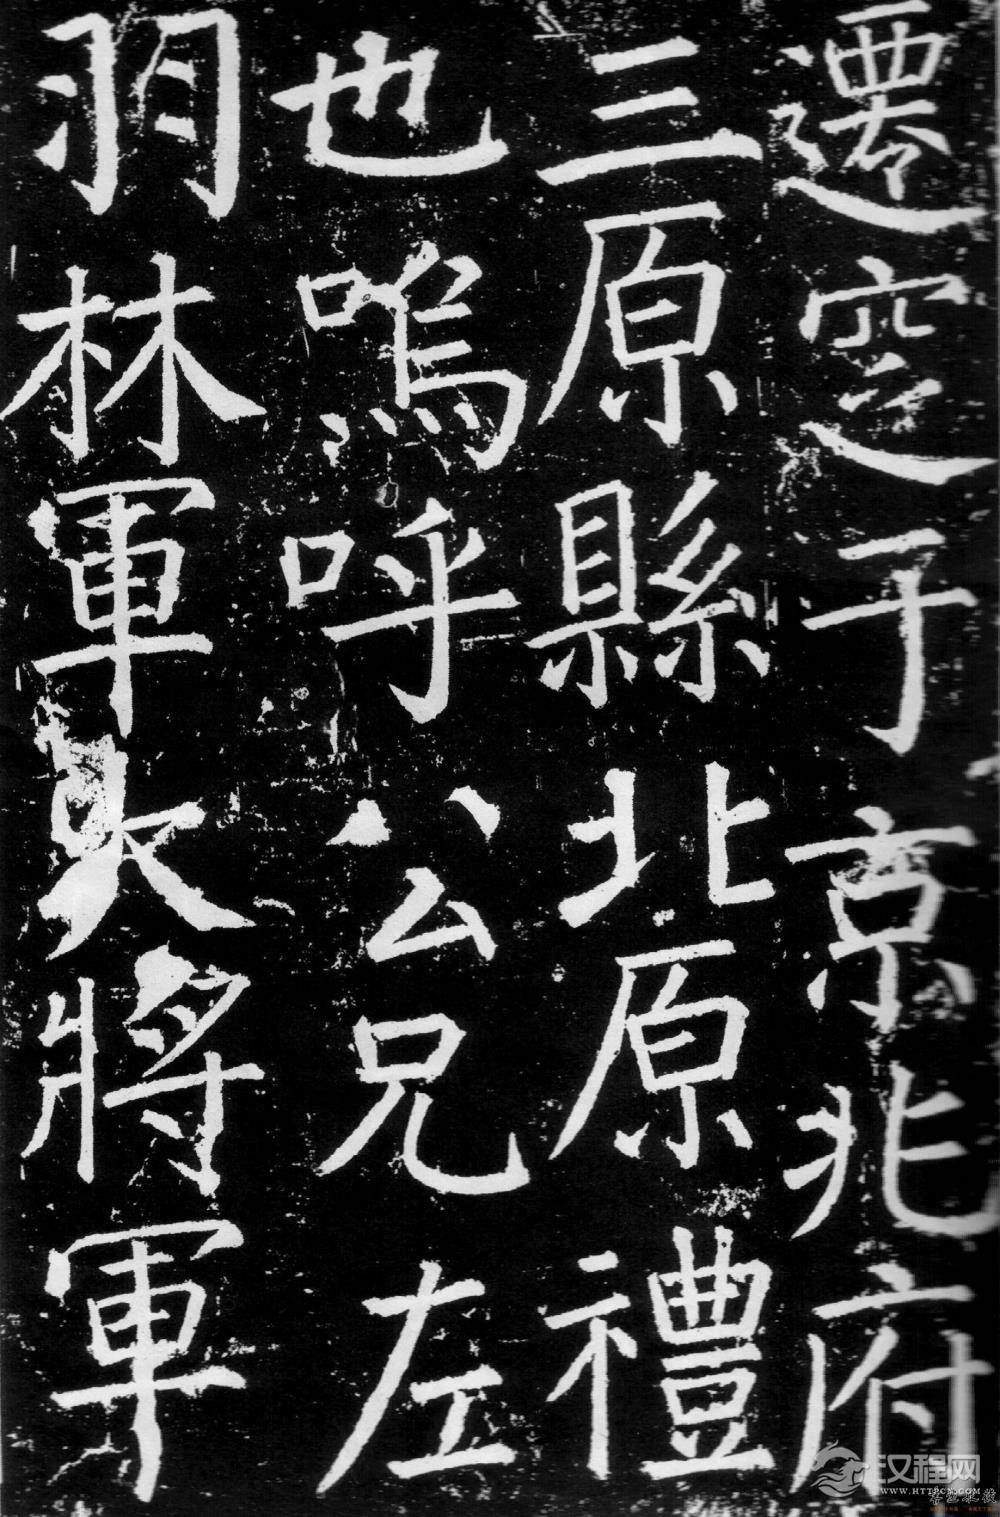 遷窆于京兆府
三原縣北原禮
也嗚呼公兄左
羽林軍大將軍
汉程网
WWW.HTTPCN.COM